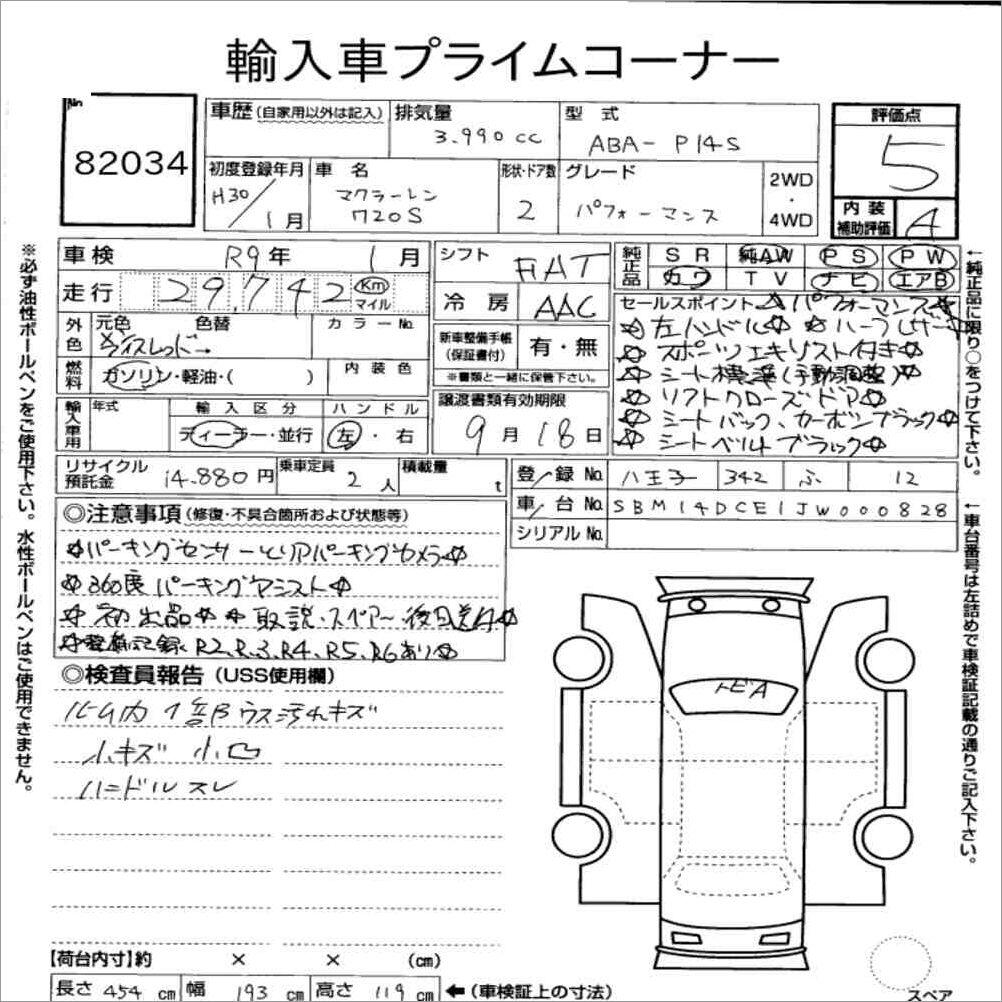 輸入車プライムコーナー
No. 82034
車歴 (自家用以外は記入) 排気量 3.990cc 型式 ABA-P14S
評価点 5
初度登録年月 H30/1月 車名 マクラーレン 720S 形状・ドア数 2 グレード パフォーマンス 2WD・4WD
内装補助評価 A
車検 R9年 1月 シフト FAT 純正品 SR 純AW PS PW
走行 29,742 Km マイル 冷房 AAC カワ TV ナビ エアB
外色 元色 色替 カラーNo.
新車整備手帳(保証書付) 有・無
※書類と一緒に保管下さい。
燃料 ガソリン・軽油・( ) 内装色
輸入車用 年式 輸入区分 ディーラー・並行 ハンドル 左・右
譲渡書類有効期限 9月18日
セールスポイント ☆パフォーマンス☆
☆左ハンドル☆ ☆ハーフレザー☆
☆スポーツエキゾスト付き☆
☆シート標準(手動調整)☆
☆リフトクローズドドア☆
☆シートバック、カーボンブラック☆
☆シートベルト ブラック☆
リサイクル預託金 14.880円 乗車定員 2人 積載量 t
登録No. 八王子 342 ふ 12
車台No. SBM14DCE1JW000828
シリアルNo.
◎注意事項 (修復・不具合箇所および状態等)
☆パーキングセンサーとリアパーキングカメラ☆
☆360度パーキングアシスト☆
☆初出品☆ ☆取説・スペアー後日送付☆
☆整備記録、R2、R3、R4、R5、R6あり☆
◎検査員報告 (USS使用欄)
ルーム内1部ウス汚れキズ
小キズ 小凹
ハンドルスレ
トビA
【荷台内寸】約 × × (cm)
長さ 454 cm 幅 193 cm 高さ 119 cm ←(車検証上の寸法)
スペア
※必ず油性ボールペンをご使用下さい。水性ボールペンはご使用できません。
←純正品に限り○をつけて下さい。
←車台番号は左詰めで車検証記載の通りご記入下さい。